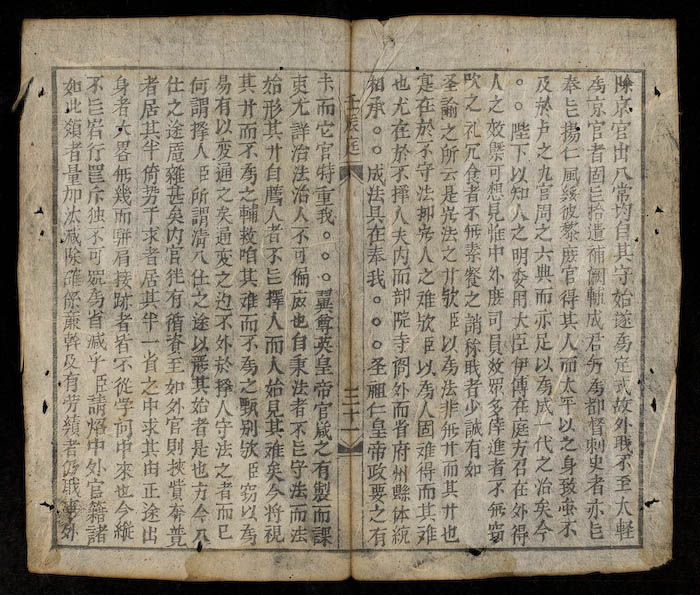 除京官出入常均自其守始遂爲定式故外戝不至太輕
爲京官者固㠯拾遺補闕輔成君爲都督刺史者亦㠯
奉㠯揚仁風綏彼黎庶官得其人而太平以之身致虽不
及於卢之九官周之六典而亦足以爲成一代之治矣今
。。陛下以知人之明委用大臣伊傅在庭方召在外得
人之效槩可想見惟中外庶司員效眾多倖進者不無窃
吹之孔冗食者不無素餐之誚称戝者少誠有如
圣諭之所云是豈法之廾欤臣以爲法非無廾而其廾也
寔在於不守法抑官人之难欤臣以爲人固难得而其难
也尤在於不擇人夫内而部院寺閣外而省府州縣体統
相承。。成法具在奉我。。。圣祖仁皇帝政要之有
壬辰廷 三十一
卡而它官特重我。。。翼尊英皇帝官箴之有製而課
吏尤詳治法治人不可偏废也自秉法者不㠯守法而法
始形其廾自薦人者不㠯擇人而人始見其难矣今将視
其廾而不爲之輔救咱其难而不爲之甄别欤臣窃以爲
易有以変通之矣通変之边不外於擇人守法之者而已
何謂擇人臣所謂清入仕之途以嚴其始者是也方今入
仕之途厖雜甚矣内官徃有循資至如外官則挾貲奔競
者居其半倚势干求者居其半一省之中求其由正途出
身者大畧無幾而骿肩接跡者皆不從学问中來也今縱
不㠯若行罢斥独不可畧爲省減乎臣請炤中外官籍諸
如此類者量加汰減除確係廉幹及有劳績者仍戝事外